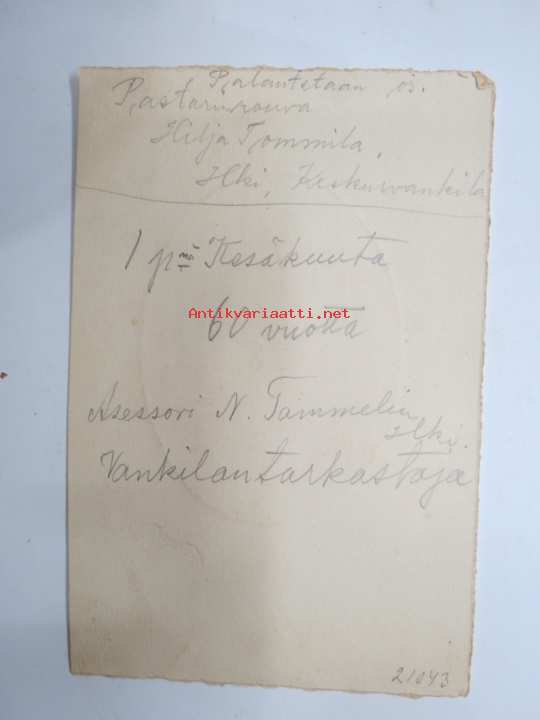 Palautetaan os.
Pastorinrouva
Hilja Tommila,
Hki, Keskusvankila
1 pnä Kesäkuuta
Antikvariaatti.net
60 vuotta
Asessori N. Tammelin
Hki.
Vankilantarkastaja
21043